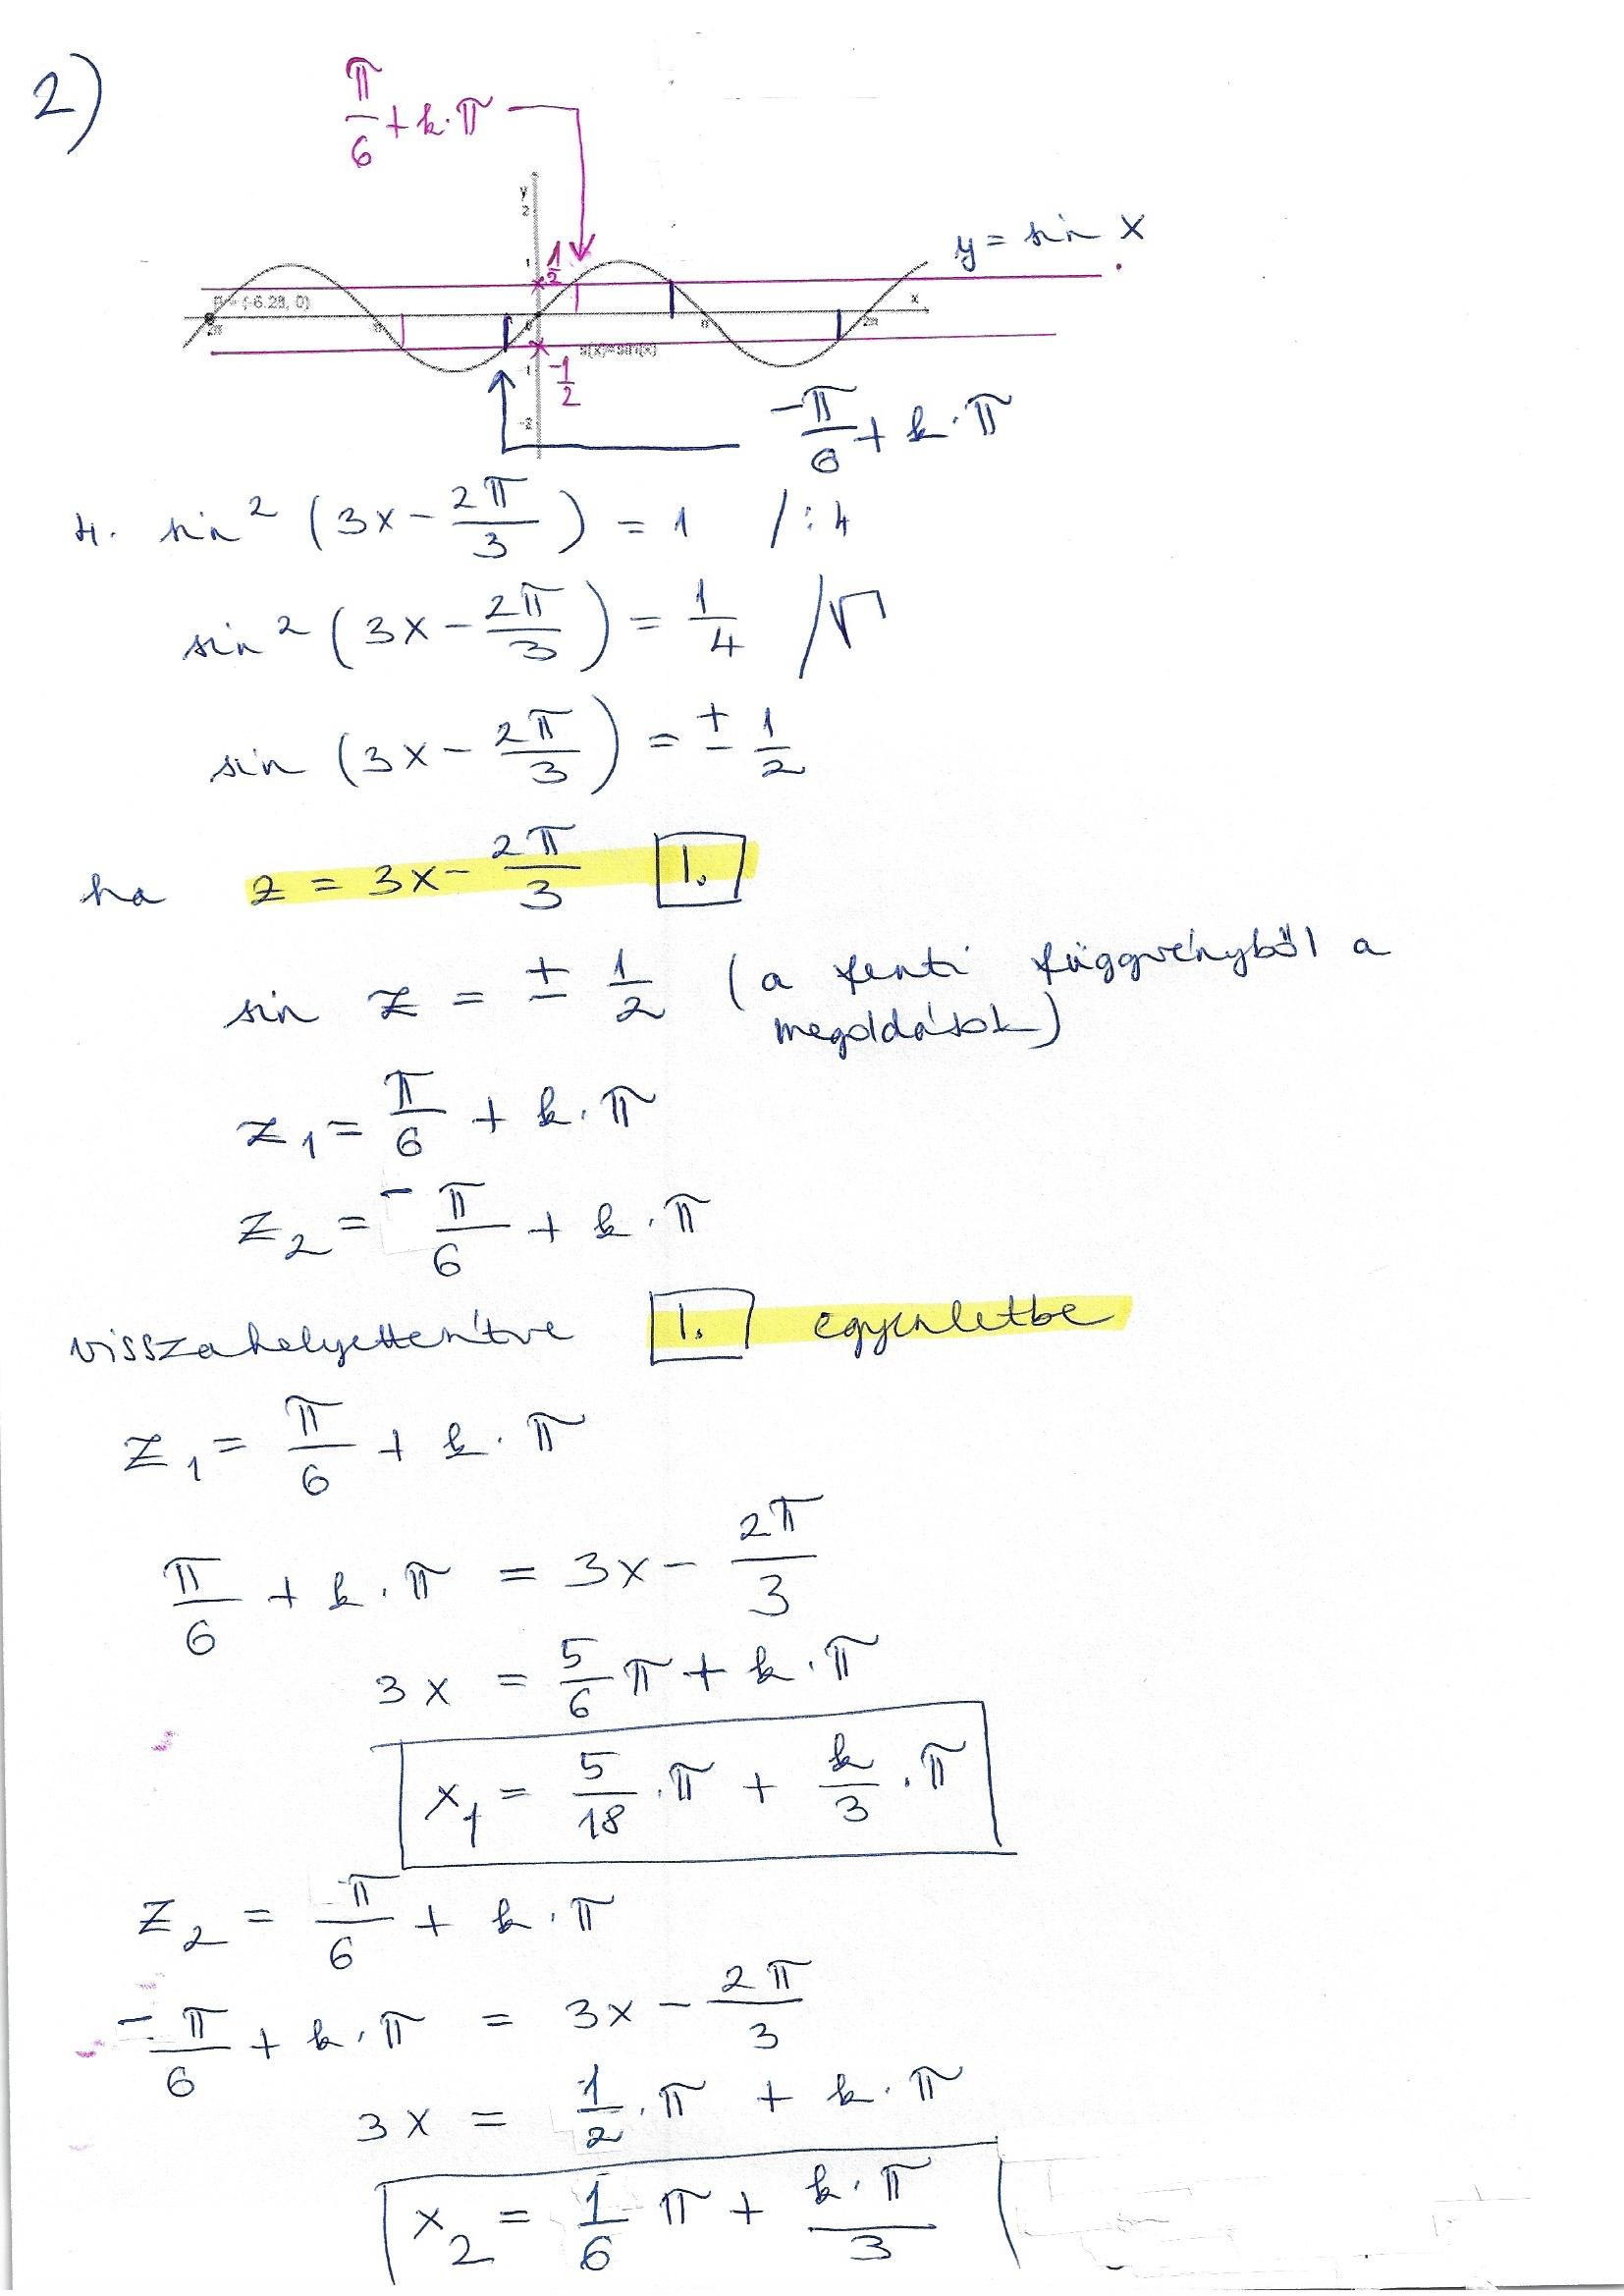 2)
π/6 + k·π
y
2
1
1/2
y = sin x
B = (-6.28, 0)
x
-2π
-π
0
π
2π
s(x)=sin(x)
-1/2
-1
-2
-π/6 + k·π
4. sin² (3x - 2π/3) = 1 /:4
sin² (3x - 2π/3) = 1/4 /√
sin (3x - 2π/3) = ± 1/2
ha z = 3x - 2π/3 1.
sin z = ± 1/2 (a fenti függvényből a
megoldások)
z₁ = π/6 + k·π
z₂ = -π/6 + k·π
visszahelyettesítve 1. egyenletbe
z₁ = π/6 + k·π
π/6 + k·π = 3x - 2π/3
3x = 5/6 π + k·π
x₁ = 5/18 ·π + k/3 ·π
z₂ = -π/6 + k·π
-π/6 + k·π = 3x - 2π/3
3x = 1/2 ·π + k·π
x₂ = 1/6 π + k·π/3